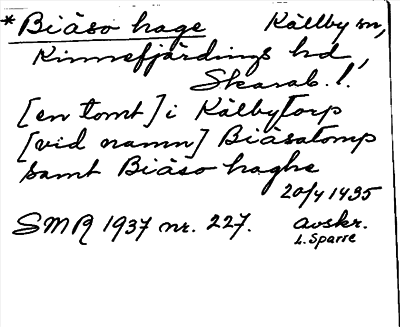 * Biäso hage Källby sn,
Kinnefjärdings hd,
Skarab. l.
[en tomt] i Kälbytorp
[vid namn] Biäsatomp
samt Biäso haghe
20/4 1435
SMR 1937 nr. 227. Avskr.
L. Sparre